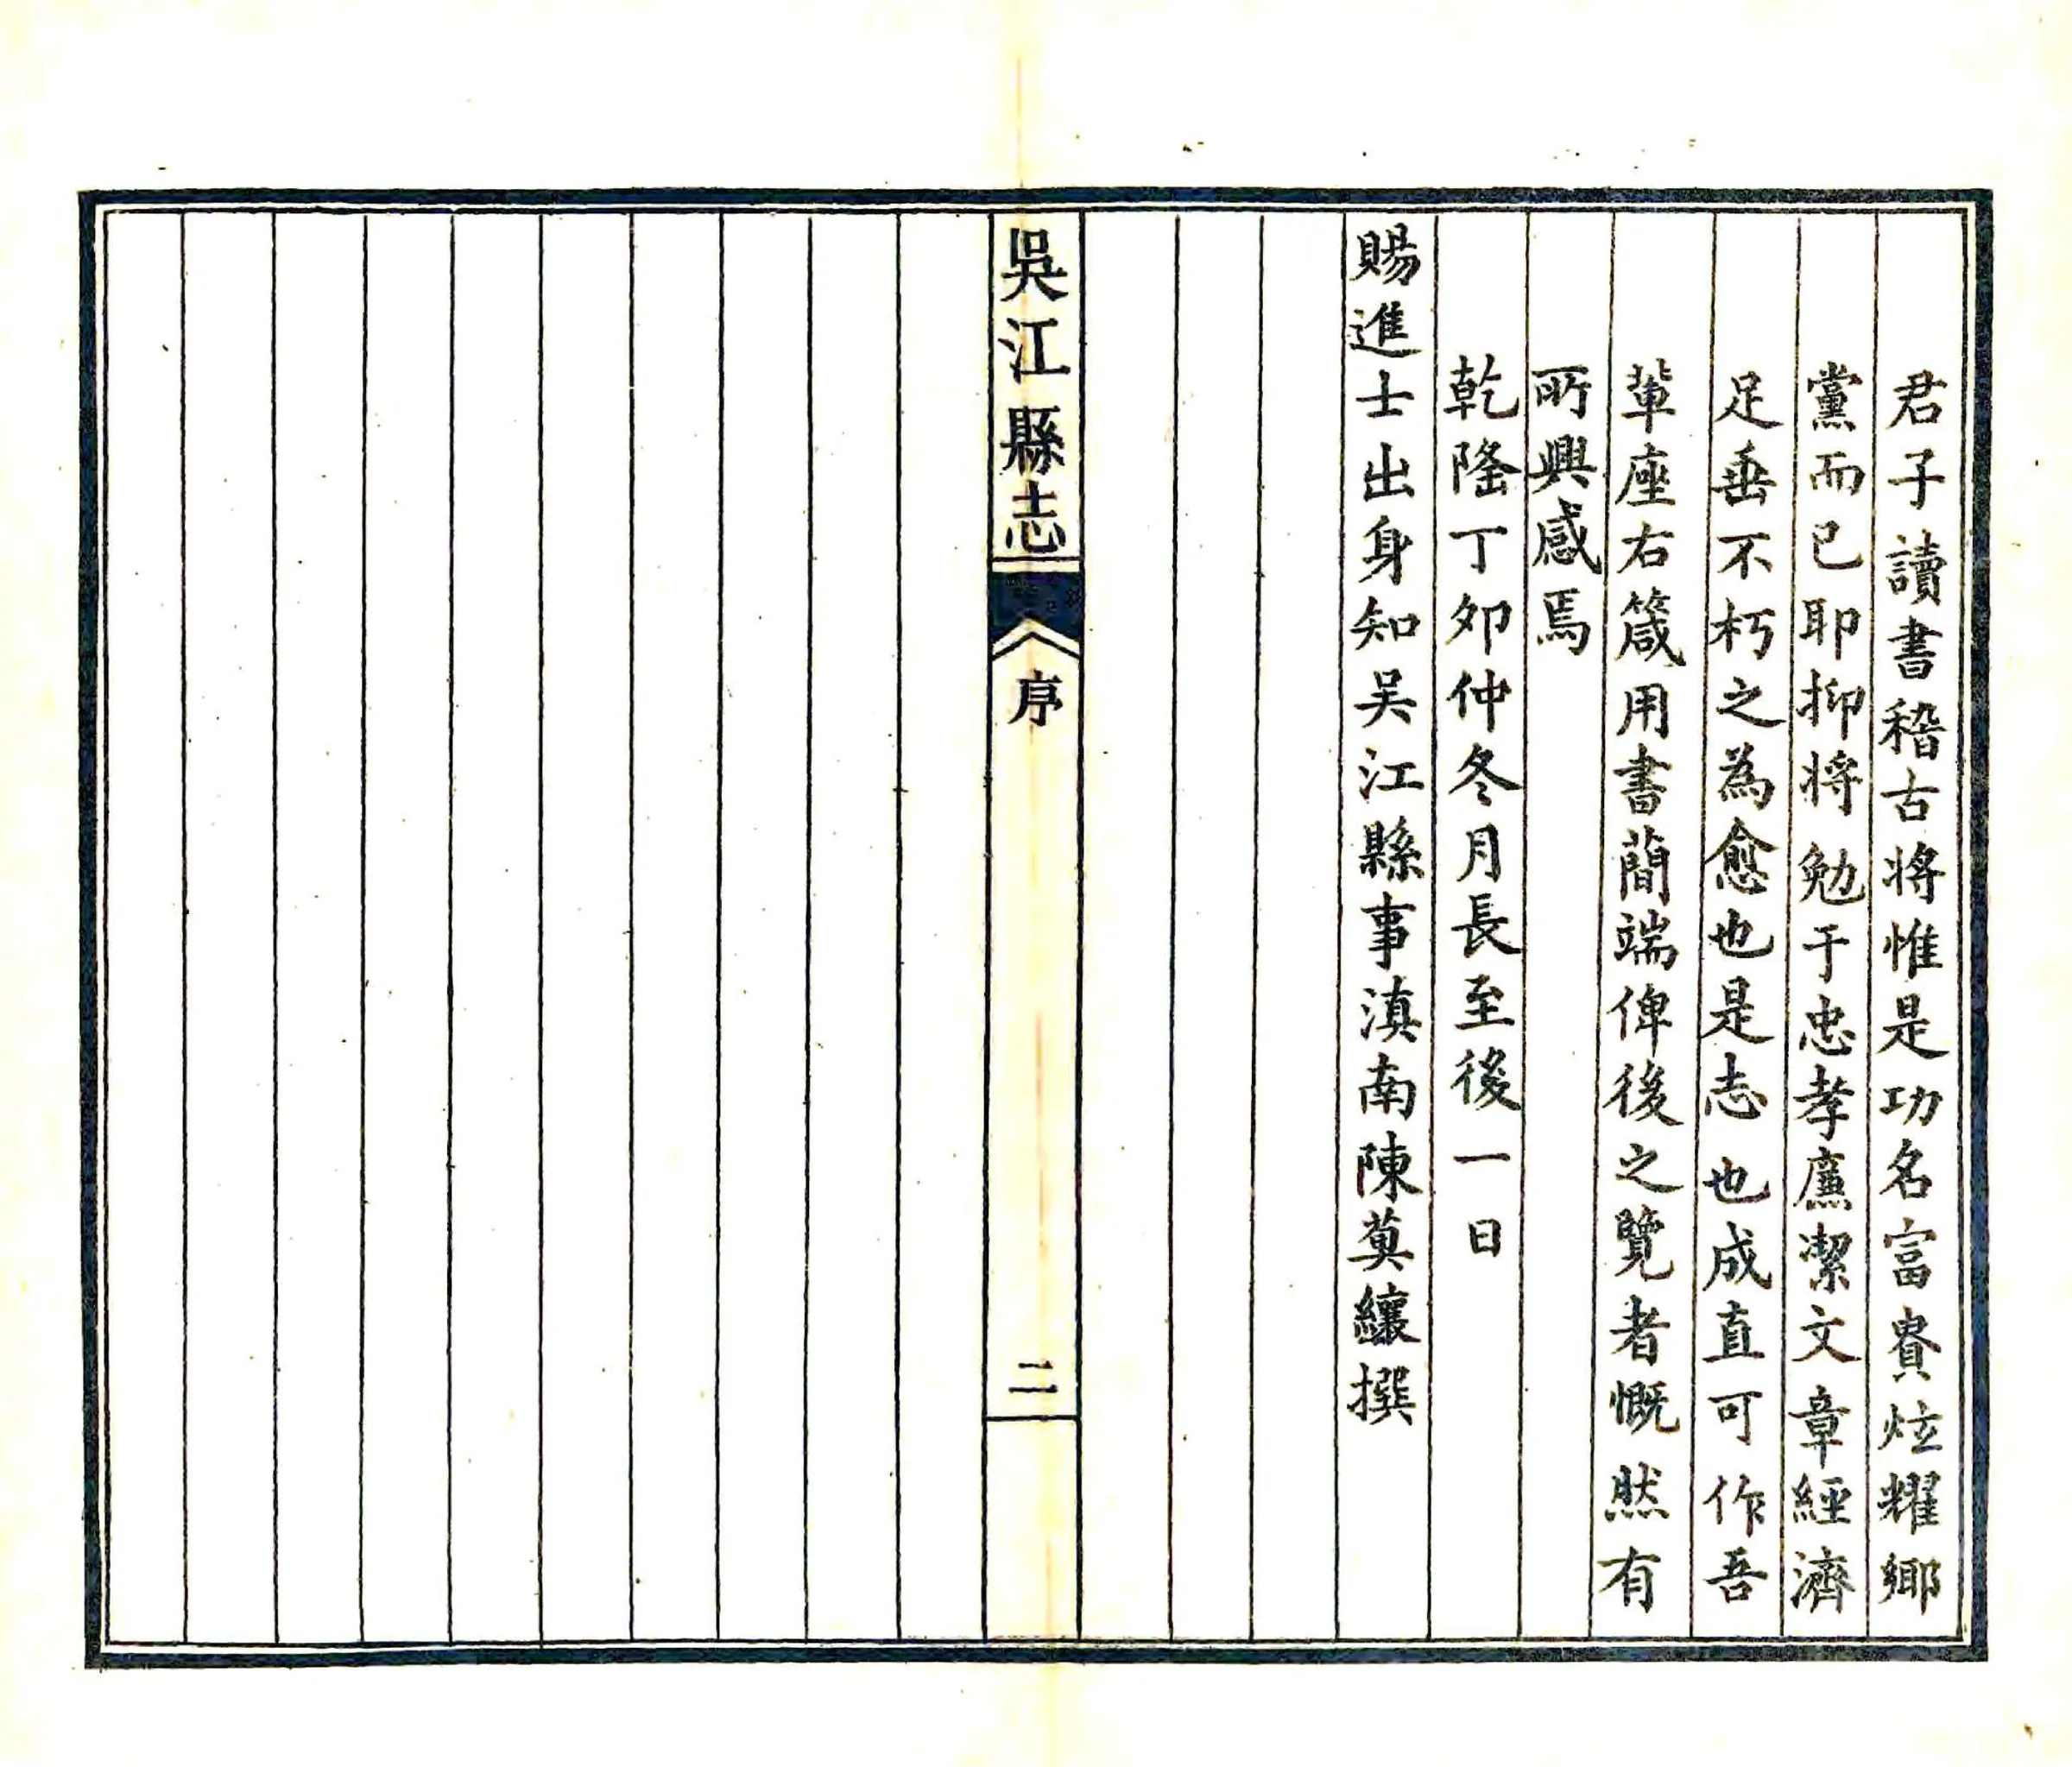 君子讀書稽古將惟是功名富貴炫耀鄉
黨而已耶抑將勉于忠孝廉潔文章經濟
足垂不朽之為愈也是志也成直可作吾
輩座右箴用書簡端俾後之覽者慨然有
所興感焉
乾隆丁卯仲冬月長至後一日
賜進士出身知吴江縣事滇南陳䔳纕撰
吳江縣志
序
二